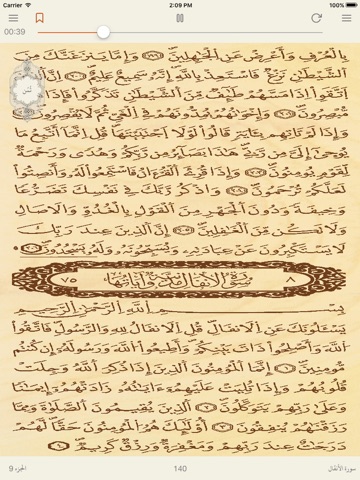 Carrier 2:09 PM 100%
00:39
بِٱلْعُرْفِ وَأَعْرِضْ عَنِ ٱلْجَٰهِلِينَ ١٩٩ وَإِمَّا يَنزَغَنَّكَ مِنَ
ٱلشَّيْطَٰنِ نَزْغٌ فَٱسْتَعِذْ بِٱللَّهِ إِنَّهُۥ سَمِيعٌ عَلِيمٌ ٢٠٠ إِنَّ ٱلَّذِينَ
ٱتَّقَوْا۟ إِذَا مَسَّهُمْ طَٰٓئِفٌ مِّنَ ٱلشَّيْطَٰنِ تَذَكَّرُوا۟ فَإِذَا هُم
مُّبْصِرُونَ ٢٠١ وَإِخْوَٰنُهُمْ يَمُدُّونَهُمْ فِى ٱلْغَىِّ ثُمَّ لَا يُقْصِرُونَ ٢٠٢
وَإِذَا لَمْ تَأْتِهِم بِـَٔايَةٍ قَالُوا۟ لَوْلَا ٱجْتَبَيْتَهَا قُلْ إِنَّمَآ أَتَّبِعُ مَا
يُوحَىٰٓ إِلَىَّ مِن رَّبِّى هَٰذَا بَصَآئِرُ مِن رَّبِّكُمْ وَهُدًى وَرَحْمَةٌ
لِّقَوْمٍ يُؤْمِنُونَ ٢٠٣ وَإِذَا قُرِئَ ٱلْقُرْءَانُ فَٱسْتَمِعُوا۟ لَهُۥ وَأَنصِتُوا۟
لَعَلَّكُمْ تُرْحَمُونَ ٢٠٤ وَٱذْكُر رَّبَّكَ فِى نَفْسِكَ تَضَرُّعًا
وَخِيفَةً وَدُونَ ٱلْجَهْرِ مِنَ ٱلْقَوْلِ بِٱلْغُدُوِّ وَٱلْءَاصَالِ
وَلَا تَكُن مِّنَ ٱلْغَٰفِلِينَ ٢٠٥ إِنَّ ٱلَّذِينَ عِندَ رَبِّكَ
لَا يَسْتَكْبِرُونَ عَنْ عِبَادَتِهِۦ وَيُسَبِّحُونَهُۥ وَلَهُۥ يَسْجُدُونَ ۩ ٢٠٦
٨ سورة الأنفال مدنية وآياتها ٧٥
بِسْمِ ٱللَّهِ ٱلرَّحْمَٰنِ ٱلرَّحِيمِ
يَسْـَٔلُونَكَ عَنِ ٱلْأَنفَالِ قُلِ ٱلْأَنفَالُ لِلَّهِ وَٱلرَّسُولِ فَٱتَّقُوا۟
ٱللَّهَ وَأَصْلِحُوا۟ ذَاتَ بَيْنِكُمْ وَأَطِيعُوا۟ ٱللَّهَ وَرَسُولَهُۥٓ إِن كُنتُم
مُّؤْمِنِينَ ١ إِنَّمَا ٱلْمُؤْمِنُونَ ٱلَّذِينَ إِذَا ذُكِرَ ٱللَّهُ وَجِلَتْ
قُلُوبُهُمْ وَإِذَا تُلِيَتْ عَلَيْهِمْ ءَايَٰتُهُۥ زَادَتْهُمْ إِيمَٰنًا
وَعَلَىٰ رَبِّهِمْ يَتَوَكَّلُونَ ٢ ٱلَّذِينَ يُقِيمُونَ ٱلصَّلَوٰةَ وَمِمَّا
رَزَقْنَٰهُمْ يُنفِقُونَ ٣ أُو۟لَٰٓئِكَ هُمُ ٱلْمُؤْمِنُونَ حَقًّا لَّهُمْ
دَرَجَٰتٌ عِندَ رَبِّهِمْ وَمَغْفِرَةٌ وَرِزْقٌ كَرِيمٌ ٤
سورة الأنفال 140 الجزء 9